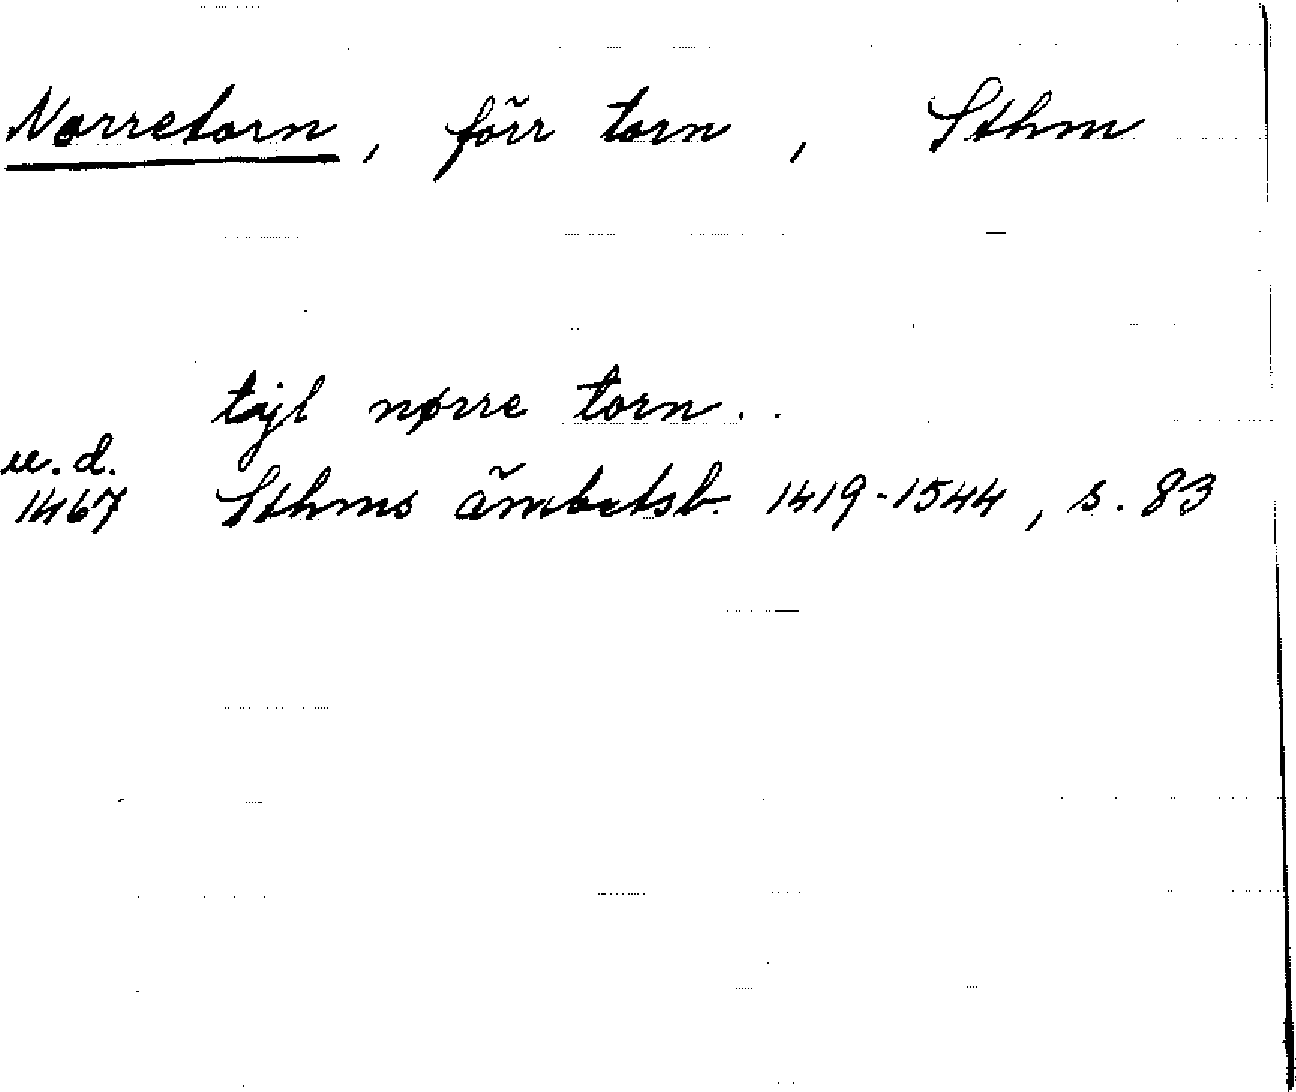 Norretorn, förr torn, Sthm
tajl nørre torn..
u.d.
1467 Sthms ämbetsb. 1419-1544, s. 83